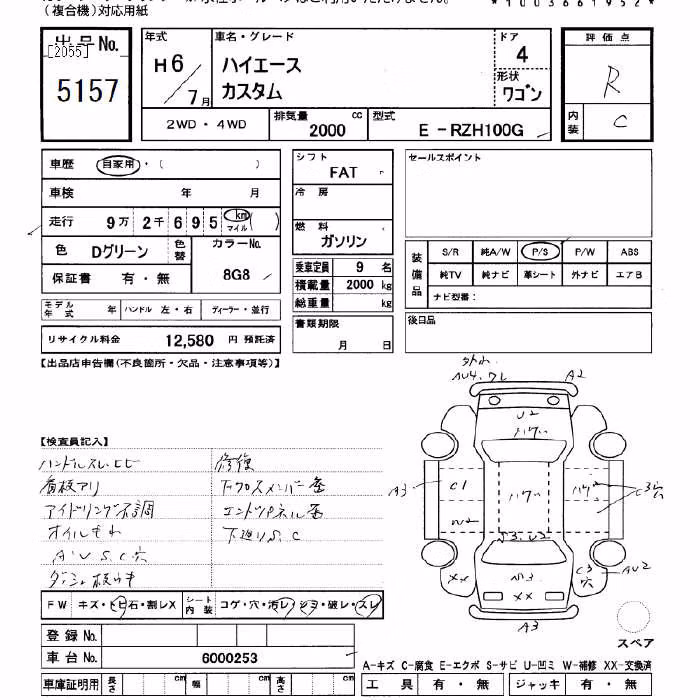 (複合機)対応用紙
*1003661952*
出品No.
[2055]
5157
年式
H6/7月
車名・グレード
ハイエース
カスタム
ドア
4
形状
ワゴン
2WD・4WD
排気量
2000 cc
型式
E-RZH100G
評価点
R
内装
C
車歴 自家用・( )
車検 年 月
走行 9万 2千 6 9 5 km マイル ( )
色 Dグリーン 色替
カラーNo.
8G8
保証書 有・無
モデル年式 年 ハンドル 左・右 ディーラー・並行
リサイクル料金 12,580 円 預託済
シフト
FAT
冷房
燃料
ガソリン
乗車定員 9 名
積載量 2000 kg
総重量 kg
書類期限
月 日
セールスポイント
装備品
S/R 純A/W P/S P/W ABS
純TV 純ナビ 革シート 外ナビ エアB
ナビ型番:
後日品
【出品店申告欄(不良箇所・欠品・注意事項等)】
【検査員記入】
ハンドルスレ
看板アリ
アイドリング不調
オイルもれ
A U S C穴
修復
下クロスメンバー歪
エンドパネル歪
下廻りS、C
A2
U2
A3
C1
W2
C3穴
C3
穴
AU2
XX
XX
A3
スペア
FW キズ・トビ石・割レX
シート内装 コゲ・穴・汚レ・シミ・破レ・スレ
登録No.
車台No. 6000253
車庫証明用 長さ cm 幅 cm 高さ cm
A-キズ C-腐食 E-エクボ S-サビ U-凹ミ W-補修 XX-交換済
工具 有・無 ジャッキ 有・無